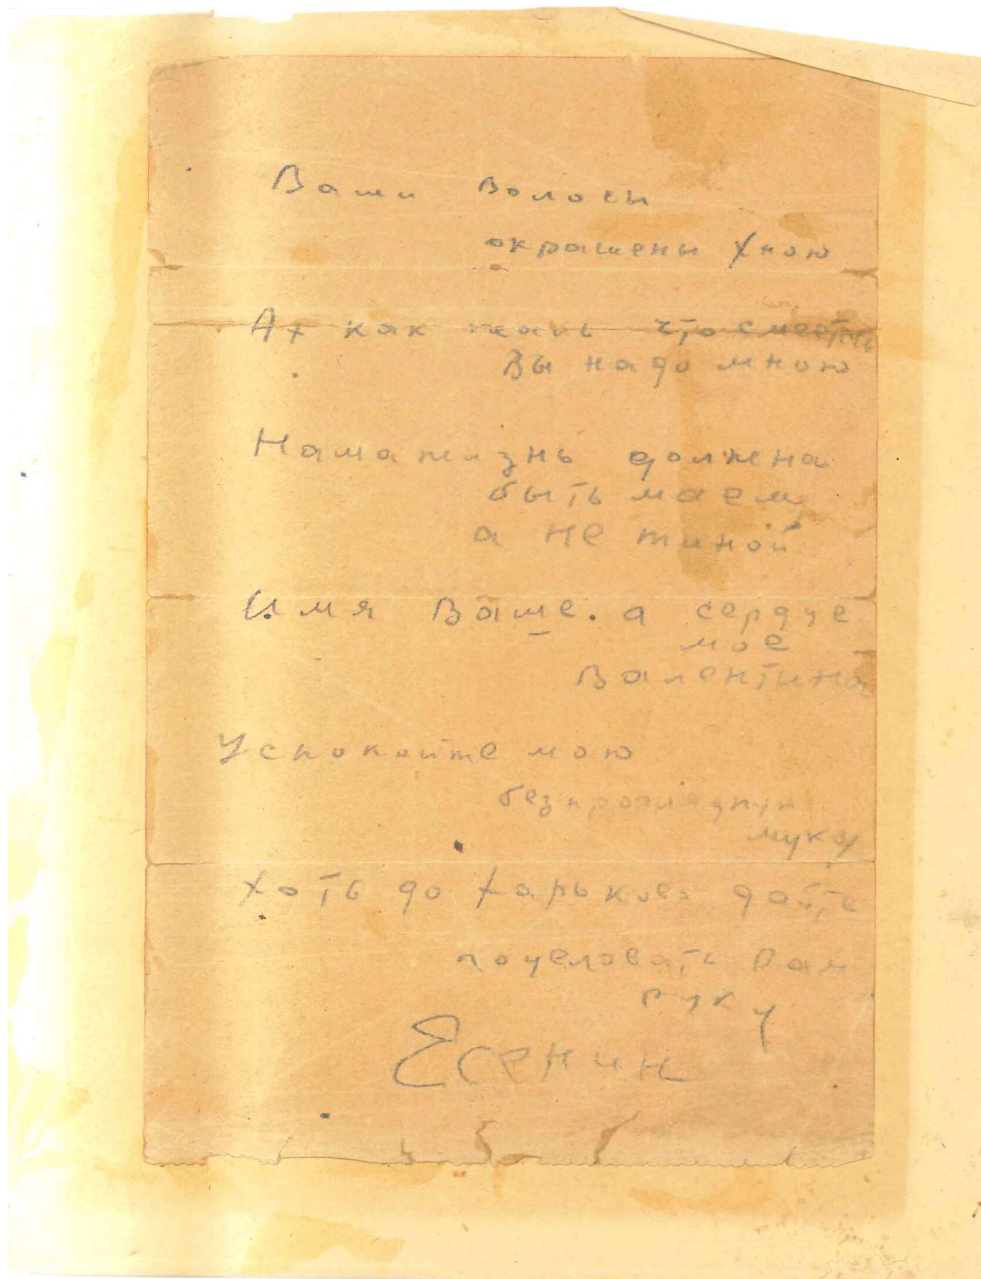 Ваши волосы
окрашены Хною
Ах как жаль что смеетесь
Вы надо мною
Наша жизнь должна
быть маем
а не тиной
Имя Ваше. а сердце
мое
Валентина
Успокойте мою
безпроглядную
муку
Хоть до Харькова дайте
поцеловать Вам
руку
Есенин